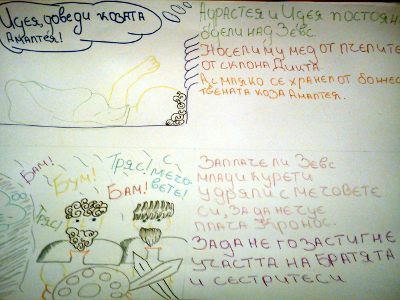 Идея, доведи козата
Амалтея!
Адрастея и Идея постоян
бдели над Зевс.
Носели му мед от пчелите
от склона Дикта
А с мляко се хранел от божес
твената коза Амалтея.
БАМ!
БУМ!
Тряс!
БАМ!
с
мечо
вете!
Тряс!
Заплачел и Зевс
млади курети
удряли с мечовете
си, за да не чуе
плача Кронос.
За да не го застигне
участта на братята
и сестрите си